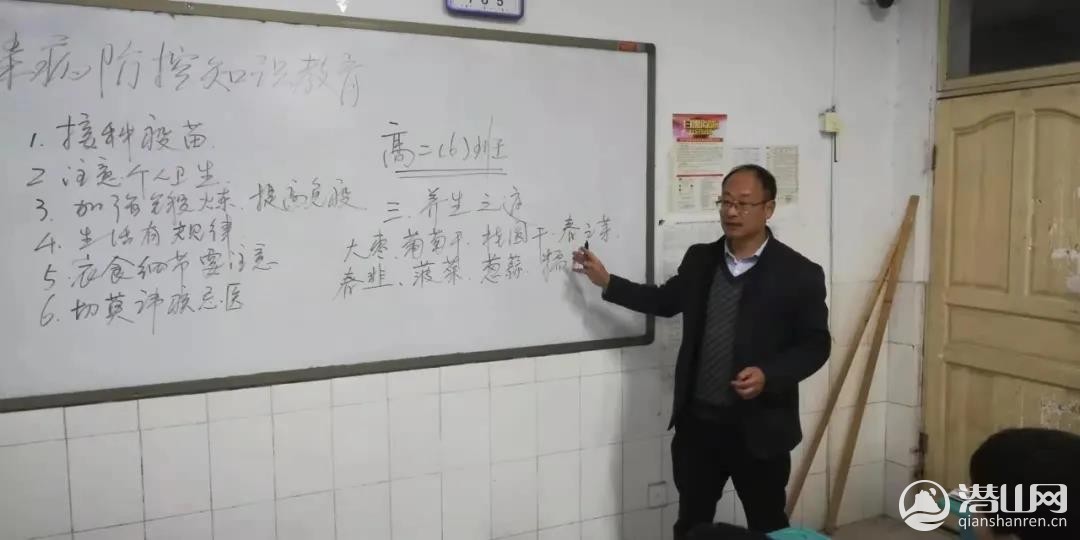 病防控知识教育
1. 接种疫苗
2 注意个人卫生
3. 加强锻炼、提高免疫
4. 生活有规律
5. 衣食细节要注意
6. 切莫讳疾忌医
高二(6)班
三.养生之
大枣.葡萄干.桂圆干.春之菜.
春韭、菠菜、葱蒜、
潜山网
qianshanren.cn